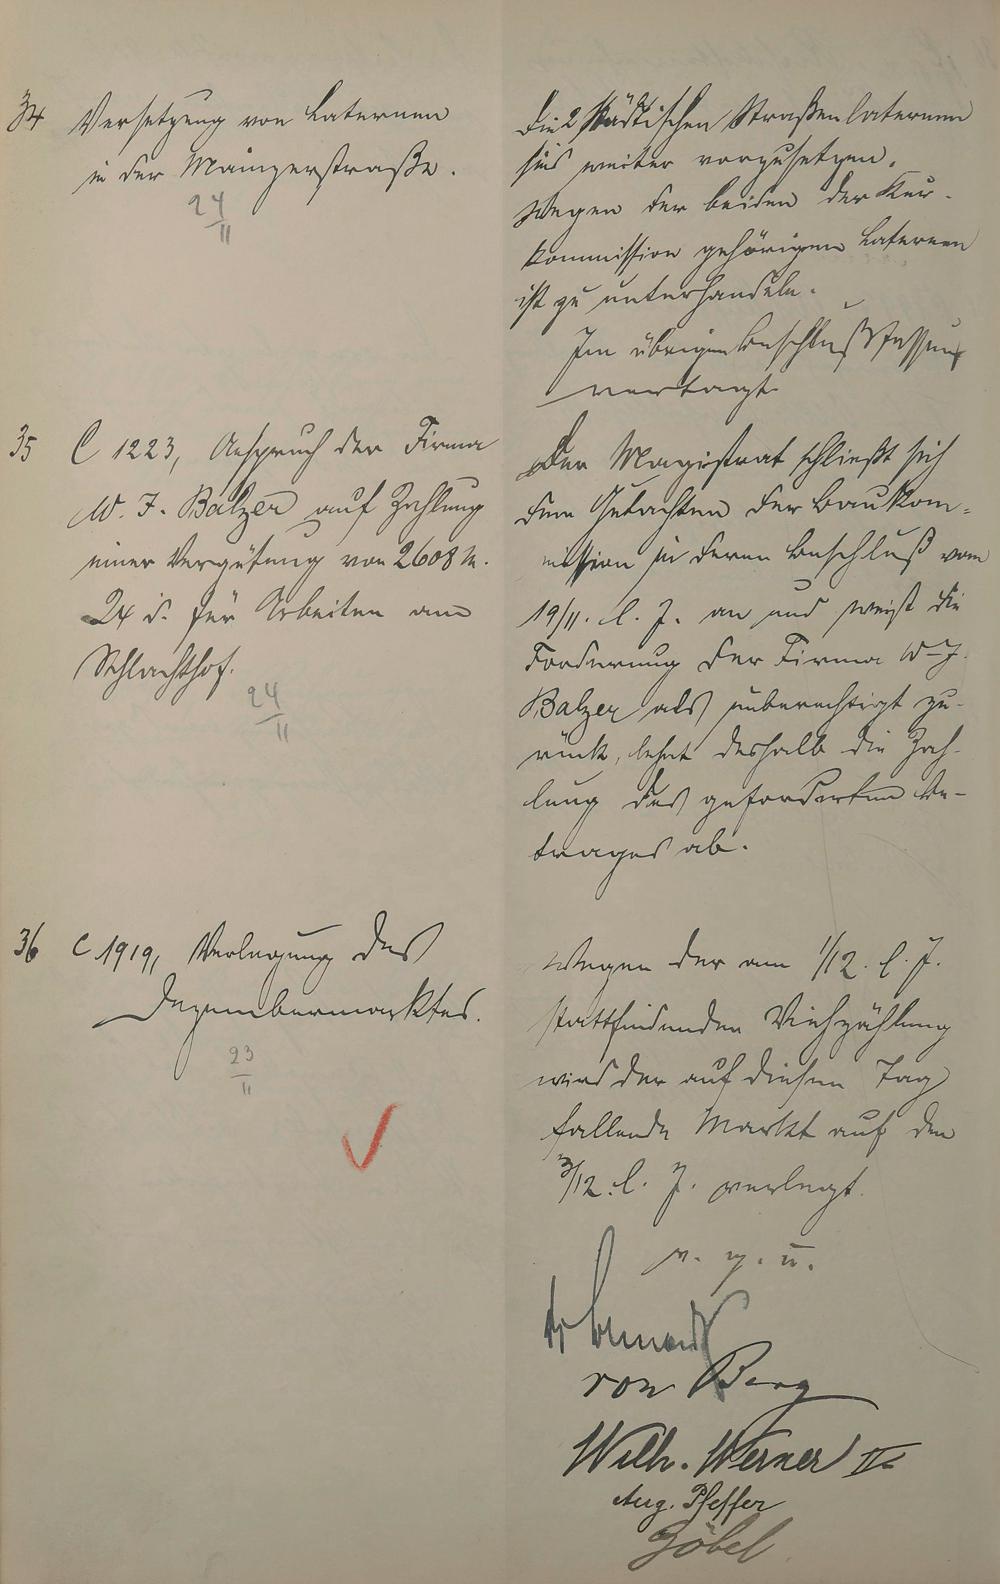 34
Versetzung von Laternen
in der Mainzerstraße.
24
11
Die 2 städtischen Straßenlaternen
sind weiter vorzusetzen.
Wegen der beiden der Kur-
kommission gehörigen Laternen
ist zu unterhandeln.
Im übrigen Beschlußfassung
vertagt.
35
C 1223, Anspruch der Firma
W. F. Balzer auf Zahlung
einer Vergütung von 2608 M.
24 d. für Arbeiten am
Schlachthof.
24
11
Der Magistrat schließt sich
dem Gutachten der Baukom-
mission in deren Beschluß vom
19/11. l. J. an und weist die
Forderung der Firma W. F.
Balzer als unberechtigt zu-
rück, lehnt deshalb die Zah-
lung des geforderten Be-
trages ab.
36
C 1919, Verlegung des
Dezembermarktes.
23
11
Wegen der am 1/12. l. J.
stattfindenden Viehzählung
wird der auf diesen Tag
fallende Markt auf den
3/12. l. J. verlegt.
v. g. u.
von Berg
Wilh. Werner IV
Aug. Pfeffer
Zöbel